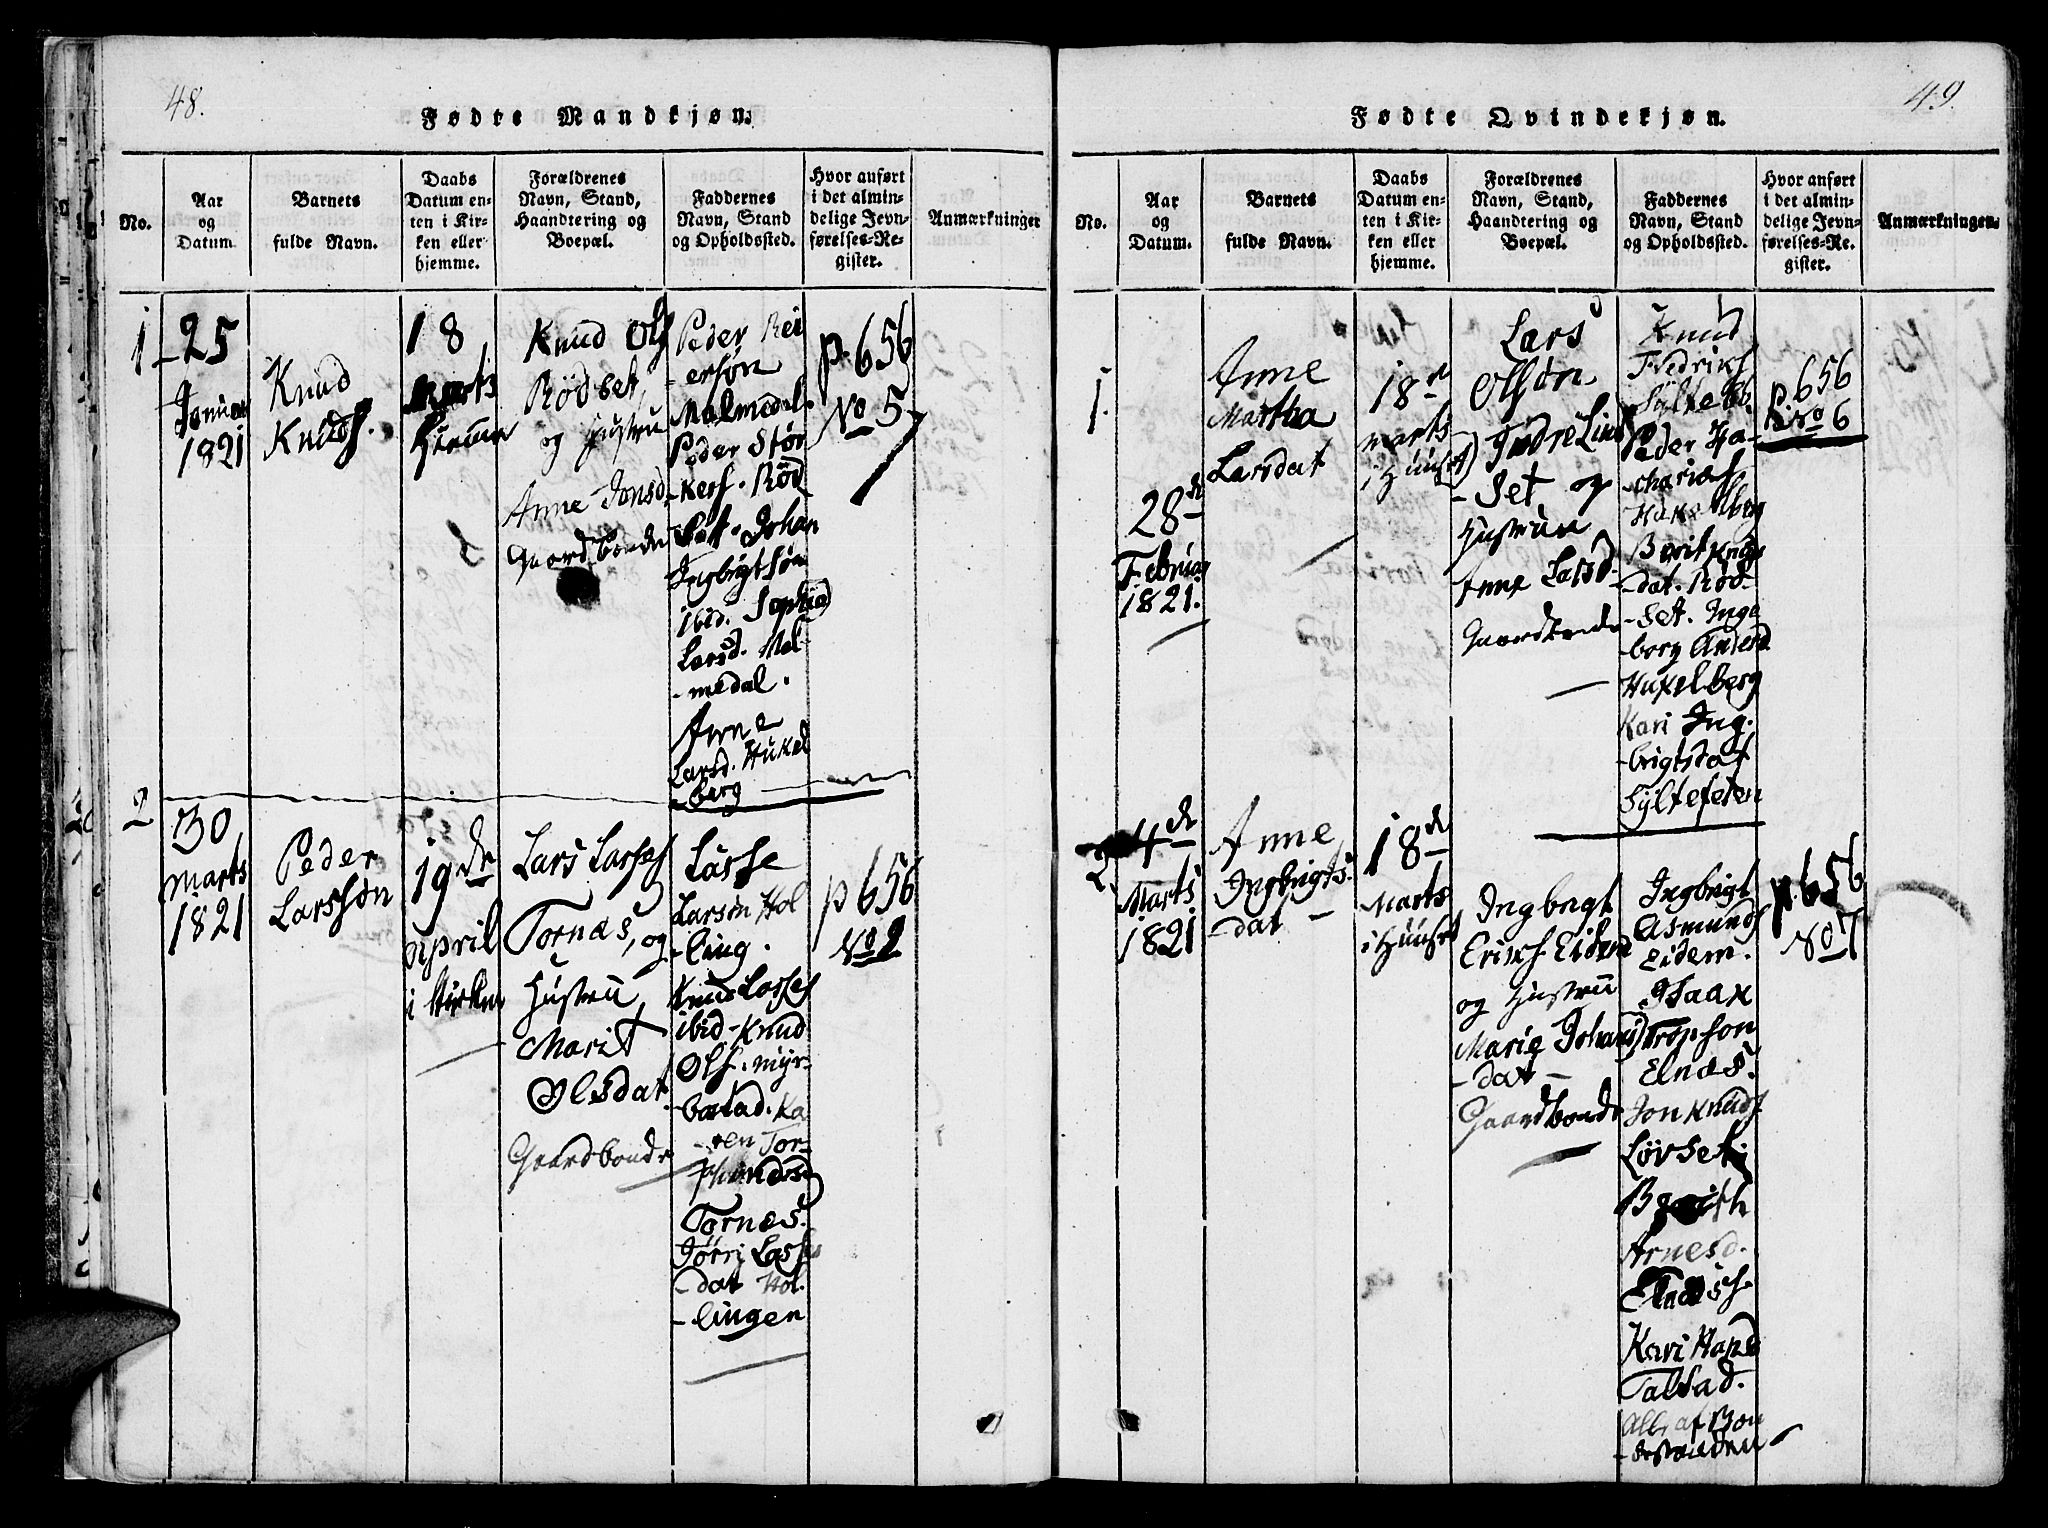 48.
Fødte Mandkjøn.
No.
Aar
og
Datum.
Barnets
fulde Navn.
Daabs
Datum en-
ten i Kir-
ken eller
hjemme.
Forældrenes
Navn, Stand,
Haandtering og
Boepæl.
Faddernes
Navn, Stand
og Opholdssted.
Hvor anført
i det almin-
delige Jevn-
førelses-Re-
gister.
Anmærkninger
1
25
Januar
1821
Knud
Knuds.
18
Marts
Hjemme
Knud Ols
Rødset,
og Hustru
Anne Jonsd.
Gaardbonde
Peder Rei
-ersøn
Malmedal.
Peder Stør
-kers. Rød
set. Johan
Ingbrigtsøn
ibid. Sophia
Larsd. Mal-
-medal.
Anne
Larsd. Hukel
-berg
p. 656
No 5
2
30
Marts
1821
Peder
Larssøn
19de
April
i Kirken
Lars Lasses
Tornæs, og
Hustru
Marit
Olsdat.
Gaardbonde
Lasse
Larsen Hol
-ling.
Knud Lasses
ibid - Knud
Ols. Myr-
-bostad. Ka
-ren Tor-
Tornæs.
Jørri Lasse
-dat Hol.
-lingen
p 656
No 2
49
Fødte Qvindekjøn.
No.
Aar
og
Datum.
Barnets
fulde Navn.
Daabs
Datum en-
ten i Kir-
ken eller
hjemme.
Forældrenes
Navn, Stand,
Haandtering og
Boepæl.
Faddernes
Navn, Stand
og Opholdssted.
Hvor anført
i det almin-
delige Jevn-
førelses-Re-
gister.
Anmærkninger.
1.
28de
Februar
1821.
Anne
Martha
Larsdat
18de
Marts
i Huuset
Lars
Olsøn
Indre Lind
-set og
Hustrue
Anne Larsd.
Gaardbonde
Knud
Fredriks
Peder Za-
-charias
Hukelberg
Berit Knds
-dat. Rød-
-set. Inge
-borg Andersd
Hukelberg
Kari Ing-
-brigtsdat
Sylteseten
p. 656
No 6
2
4de
Marts
1821
Anne
Ingbrigts-
-dat -
18de
Marts
i Huuset
Ingbrigt
Erichs Eidem
og Hustru
Marie Johans
-dat -
Gaardbonde
Ingbrigt
Asmunds
Eidem.
Isaak
Elnæs.
Jon Knuds
Løvset
Berith
Arnesd.
Elnæs
Kari Hansd
Talstad.
Alle af Bon
-destanden
p. 656
No 7